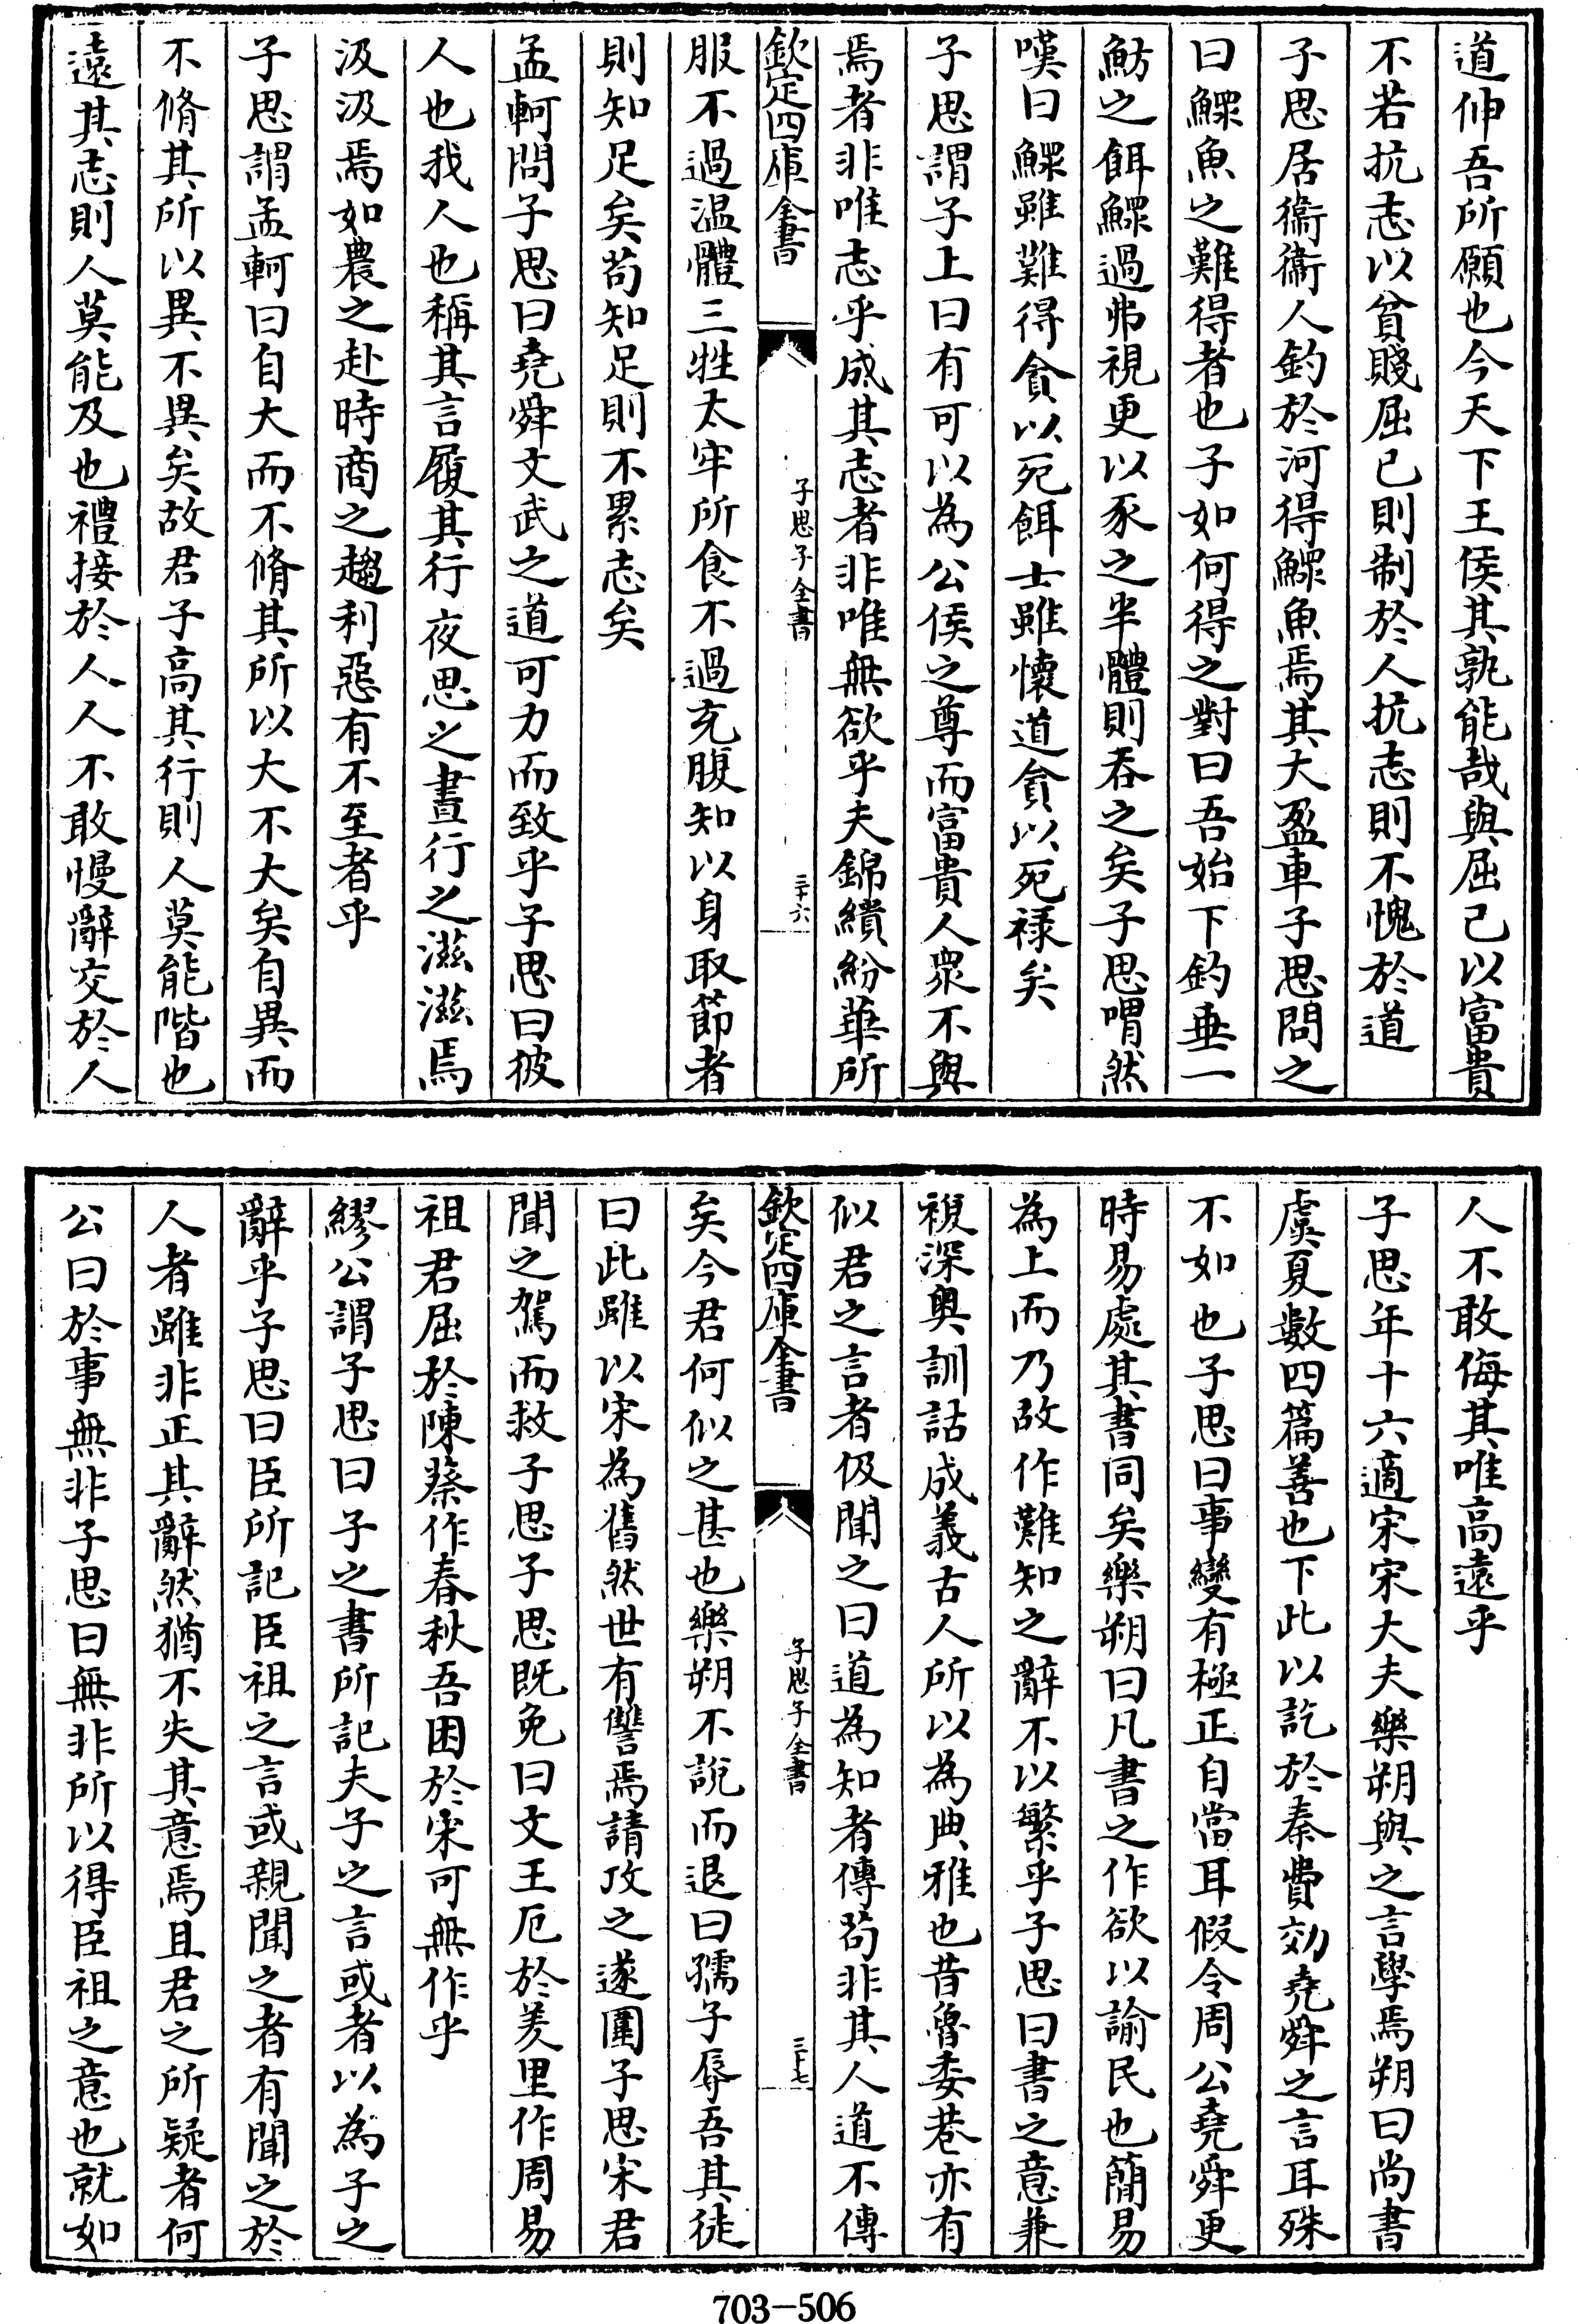 道伸吾所願也今天下王侯其孰能哉與屈己以富貴
不若抗志以貧賤屈己則制於人抗志則不愧於道
子思居衞衞人釣於河得鰥魚焉其大盈車子思問之
曰鰥魚之難得者也子如何得之對曰吾始下釣垂一
魴之餌鰥過弗視更以豕之半體則吞之矣子思喟然
嘆曰鰥雖難得貪以死餌士雖懷道貪以死祿矣
子思謂子上曰有可以為公侯之尊而富貴人衆不與
焉者非唯志乎成其志者非唯無欲乎夫錦繢紛華所
欽定四庫全書
子思子全書
三十六
服不過溫體三牲太牢所食不過充腹知以身取節者
則知足矣苟知足則不累志矣
孟軻問子思曰堯舜文武之道可力而致乎子思曰彼
人也我人也稱其言履其行夜思之晝行之滋滋焉
汲汲焉如農之赴時商之趨利惡有不至者乎
子思謂孟軻曰自大而不脩其所以大不大矣自異而
不脩其所以異不異矣故君子高其行則人莫能階也
遠其志則人莫能及也禮接於人人不敢慢辭交於人
人不敢侮其唯高遠乎
子思年十六適宋宋大夫樂朔與之言學焉朔曰尚書
虞夏數四篇善也下此以訖於秦費効堯舜之言耳殊
不如也子思曰事變有極正自當耳假令周公堯舜更
時易處其書同矣樂朔曰凡書之作欲以諭民也簡易
為上而乃故作難知之辭不以繁乎子思曰書之意兼
複深奧訓詁成義古人所以為典雅也昔魯委巷亦有
似君之言者伋聞之曰道為知者傳茍非其人道不傳
欽定四庫全書
子思子全書
三十七
矣今君何似之甚也樂朔不說而退曰孺子辱吾其徒
曰此雖以宋為舊然世有讐焉請攻之遂圍子思宋君
聞之駕而救子思子思既免曰文王厄於羑里作周易
祖君屈於陳蔡作春秋吾困於宋可無作乎
繆公謂子思曰子之書所記夫子之言或者以為子之
辭乎子思曰臣所記臣祖之言或親聞之者有聞之於
人者雖非正其辭然猶不失其意焉且君之所疑者何
公曰於事無非子思曰無非所以得臣祖之意也就如
703-506